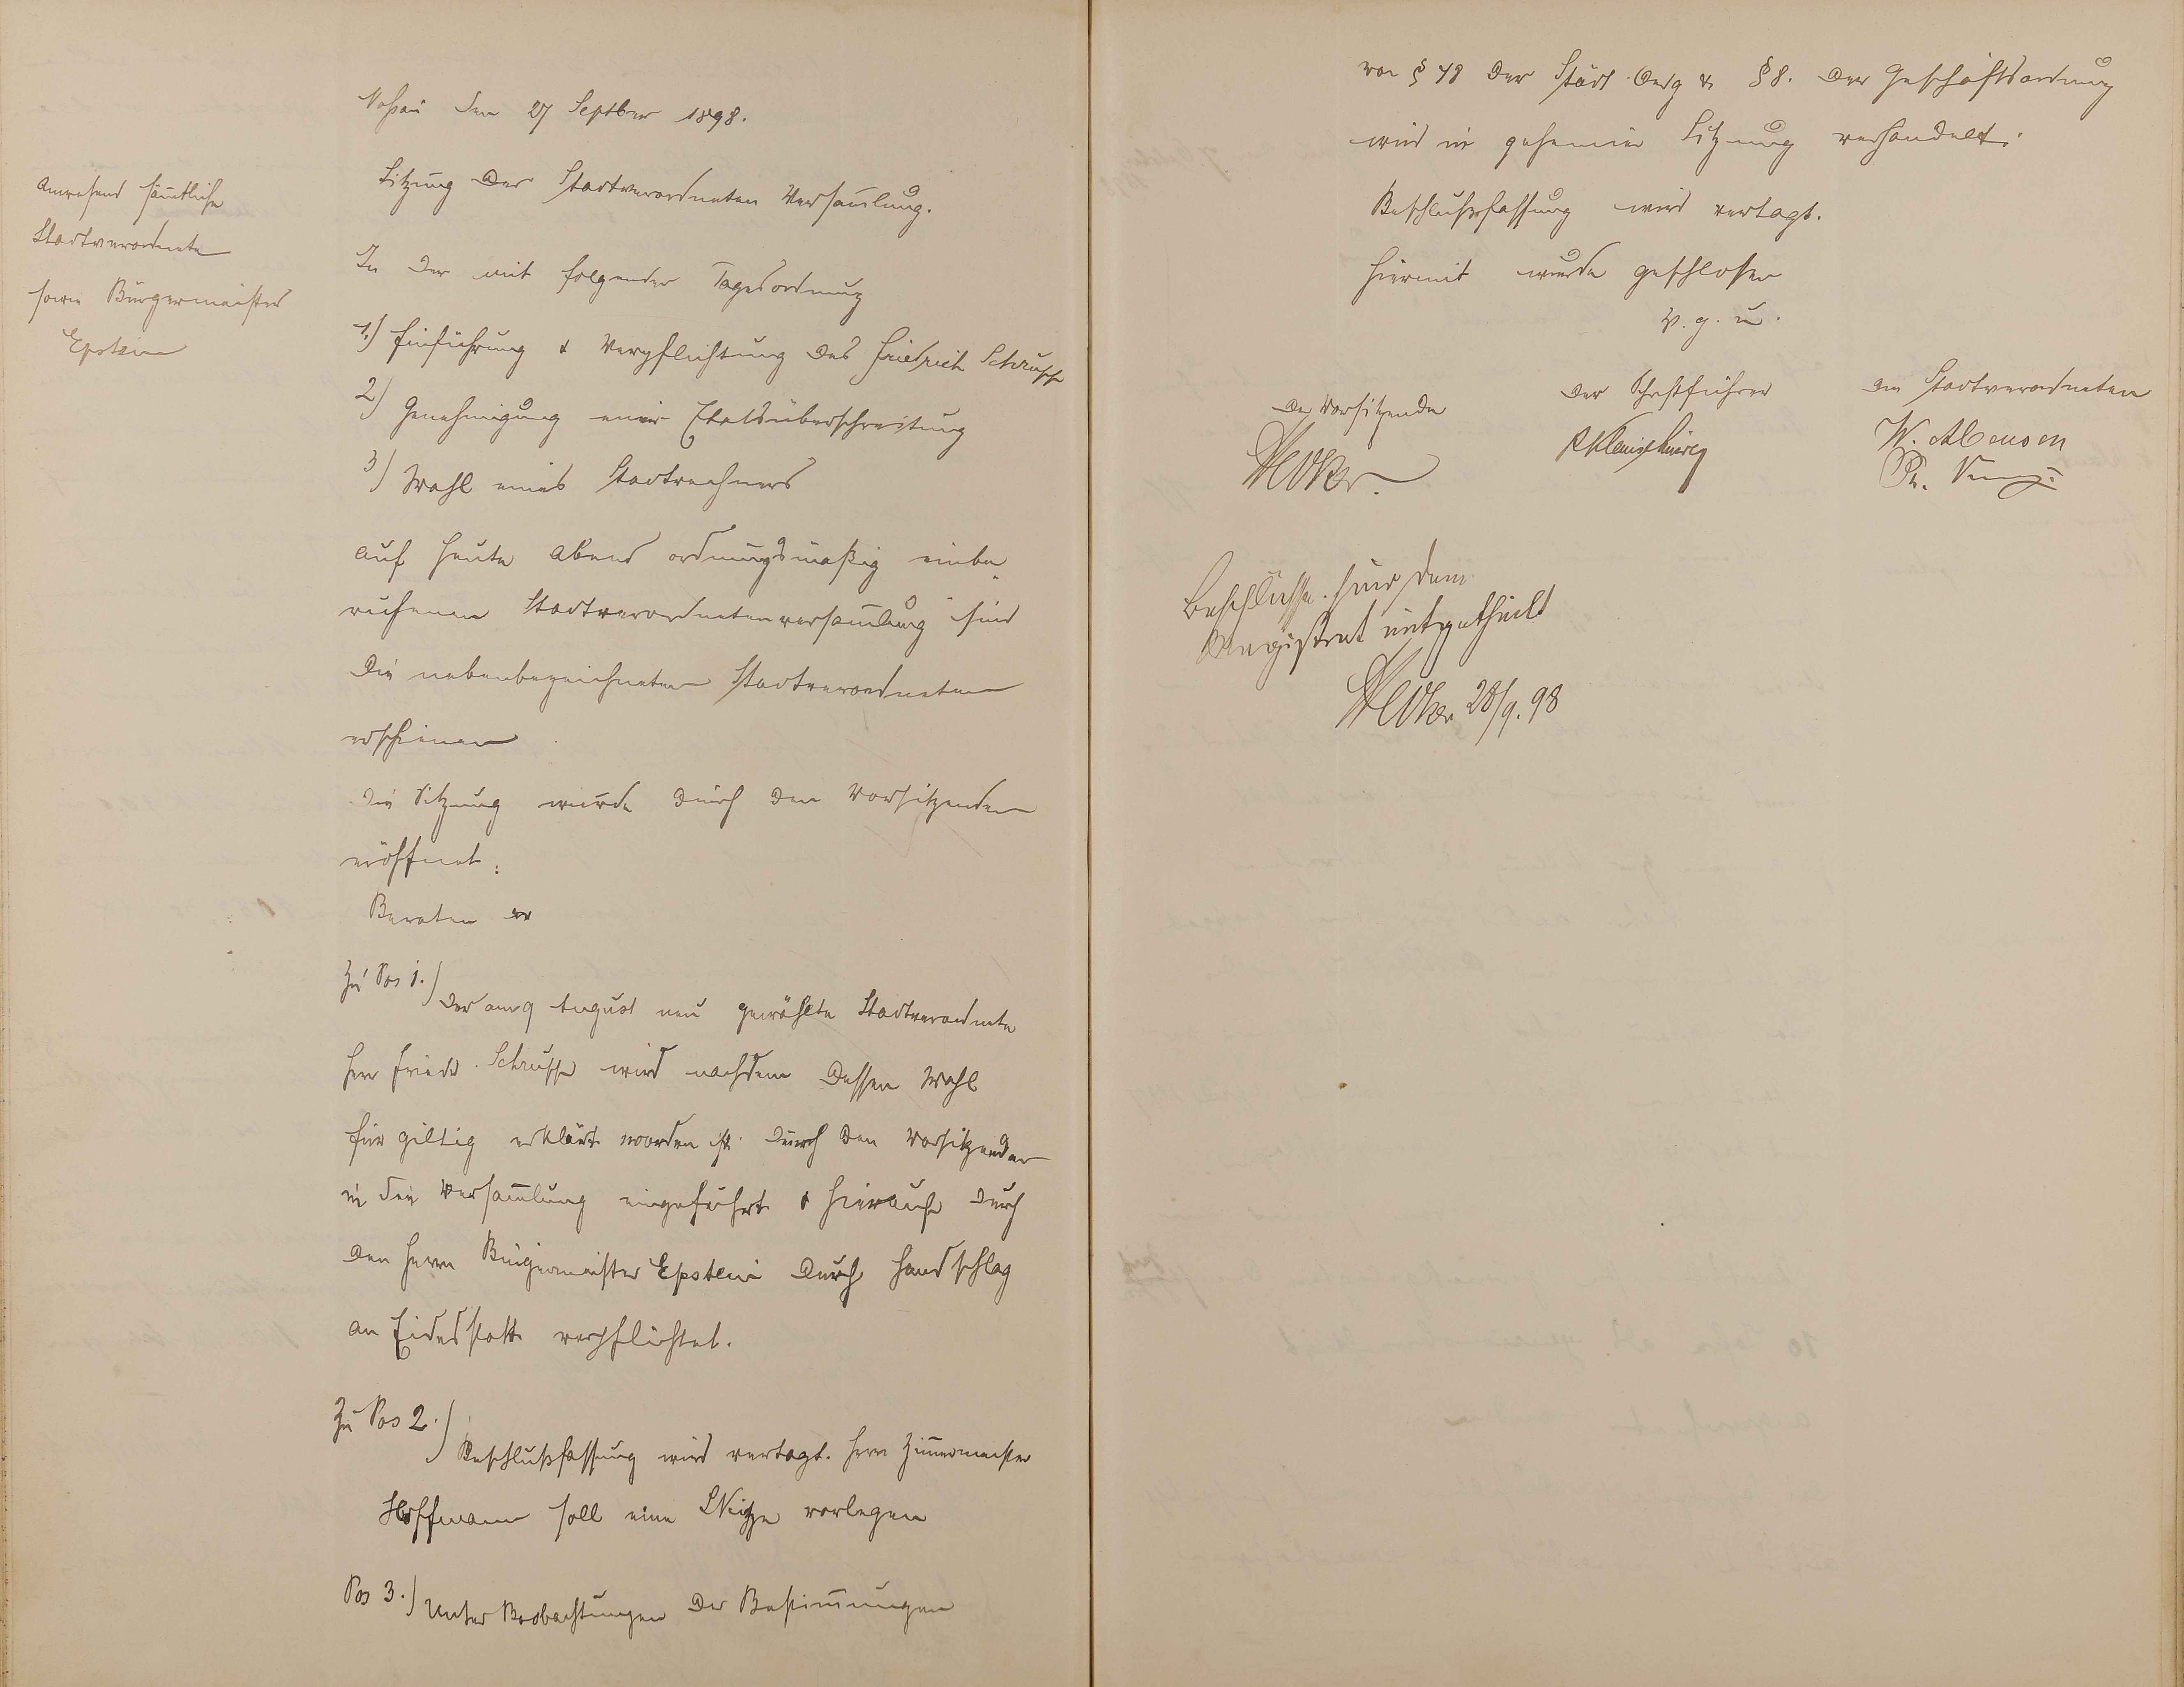 Anwesend sämtliche
Stadtverordnete
sowie Bürgermeister
Epstein
Nassau den 27 Septber 1898.
Sitzung der Stadtverordneten Versam̄lung.
In der mit folgender Tagesordnung
1.) Einführung & Verpflichtung des Friedrich Schrupp
2) Genehmigung einer Etatsüberschreitung
3) Wahl eines Stadtrechners
auf heute Abend ordnungsmäßig einbe„
rufenen Stadtverordnetenversam̄lung sind
die nebenbezeichneten Stadtverordneten
erschienen
Die Sitzung wurde durch den Vorsitzenden
eröffnet.
Beraten
Zu Pos 1.) Der am 9 August neu gewählte Stadtverordnete
Herr Friedr. Schrupp wird nachdem dessen Wahl
für giltig erklärt worden ist durch den Vorsitzenden
in die Versam̄lung eingeführt & hierauf durch
den Herrn Bürgermeister Epstein durch Handschlag
an Eidesstatt verpflichtet.
Zu Pos 2.) Beschlußfassung wird vertagt. Herr Zim̄ermeister
Hoffmann soll eine Skizze vorlegen
Pos 3.) Unter Beobachtungen der Bestim̄ungen
von § 48 der Städt Ordg & § 8. der Geschäftsordnung
wird in geheimer Sitzung verhandelt.
Beschlußfassung wird vertagt.
Hiermit wurde geschlossen
V. g. u.
Der Vorsitzende
Der Schriftführer
Die Stadtverordneten
W.
Beschlüsse sind dem
Magistrat mitgetheilt
28/9. 98